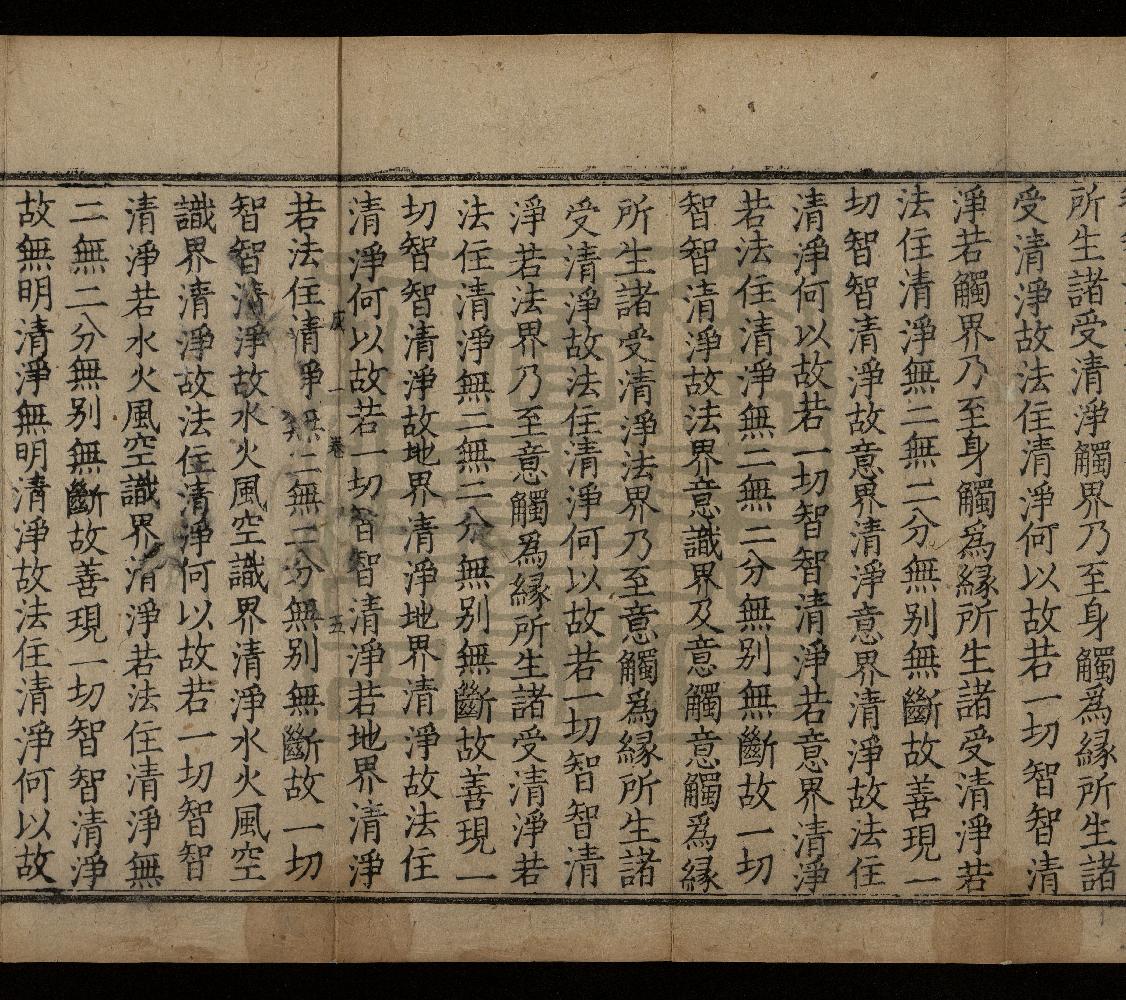 所生諸受清淨觸界乃至身觸爲緣所生諸
受清淨故法住清淨何以故若一切智智清
淨若觸界乃至身觸爲緣所生諸受清淨若
法住清淨無二無二分無别無斷故善現一
切智智清淨故意界清淨意界清淨故法住
清淨何以故若一切智智清淨若意界清淨
若法住清淨無二無二分無别無斷故一切
智智清淨故法界意識界及意觸意觸爲緣
所生諸受清淨法界乃至意觸爲緣所生諸
受清淨故法住清淨何以故若一切智智清
淨若法界乃至意觸爲緣所生諸受清淨若
法住清淨無二無二分無别無斷故善現一
切智智清淨故地界清淨地界清淨故法住
清淨何以故若一切智智清淨若地界清淨
一卷 五
若法住清淨無二無二分無别無斷故一切
智智清淨故水火風空識界清淨水火風空
識界清淨故法住清淨何以故若一切智智
清淨若水火風空識界清淨若法住清淨無
二無二分無别無斷故善現一切智智清淨
故無明清淨無明清淨故法住清淨何以故